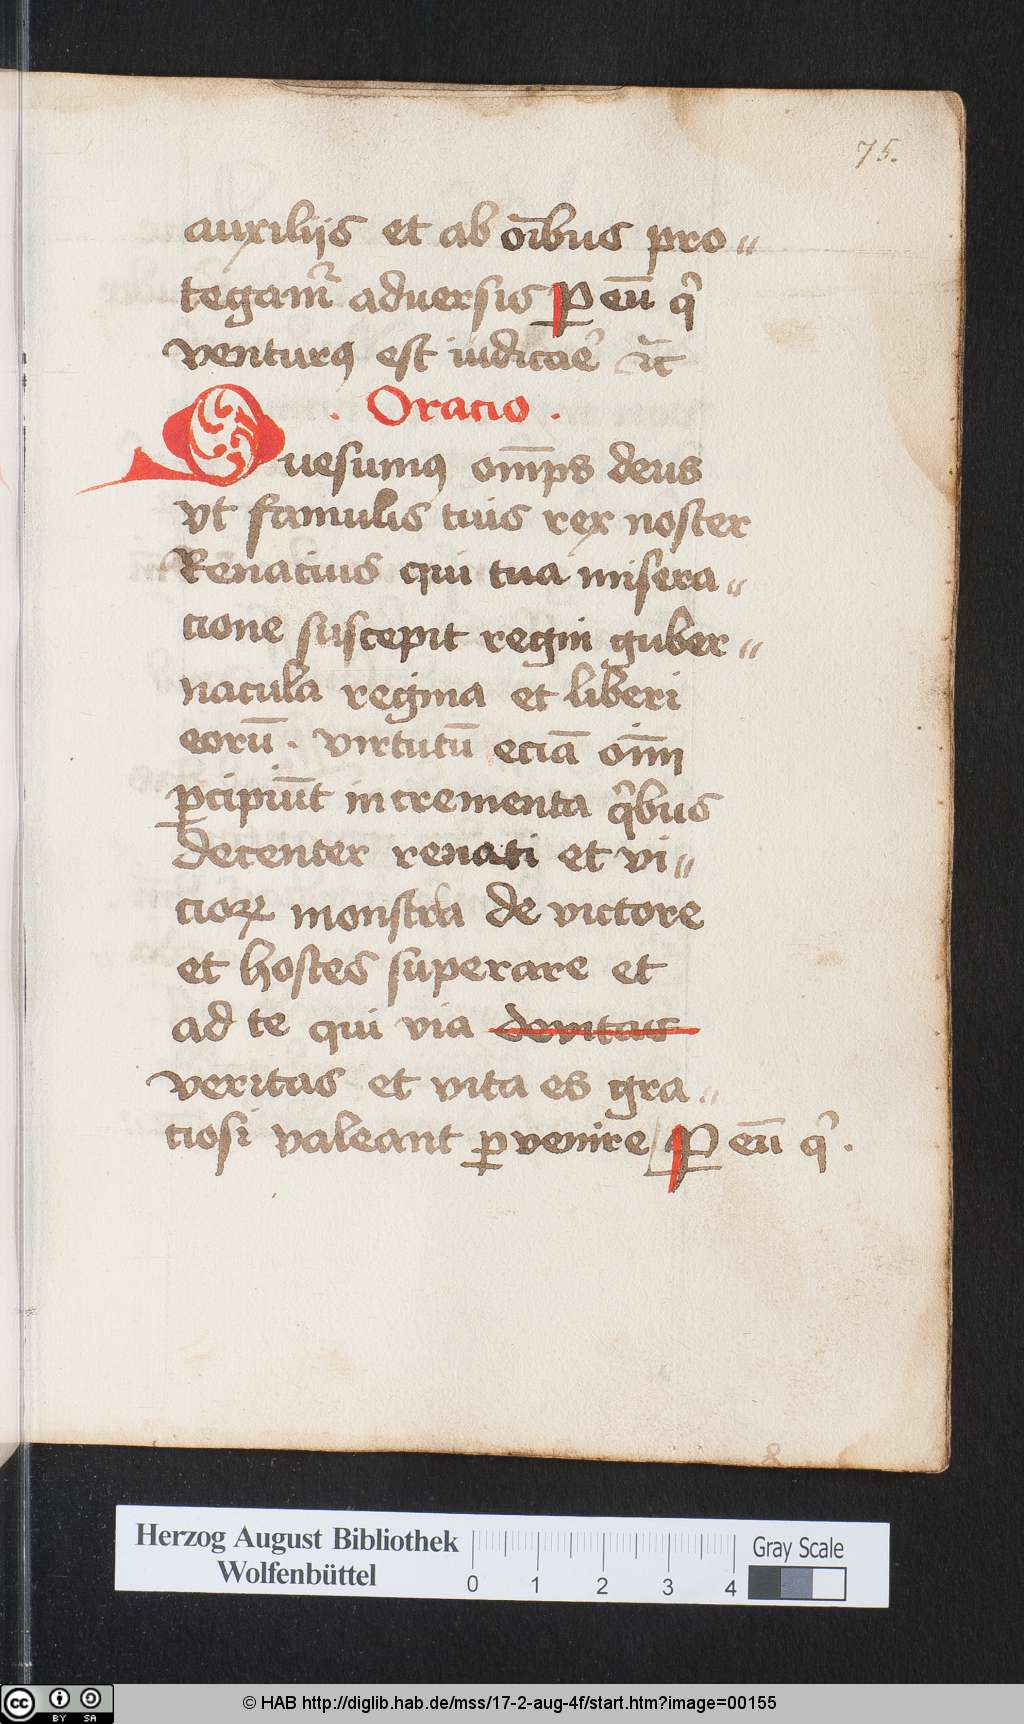 75.
auxiliis et ab oībus pro〃
tegam̃ adversis ꝑ eū qͥ
venturꝯ est iudicaē ⁊c̄
. Oracio .
Quesumꝯ om̅ps deus
vt famulis tuus rex noster
Renatius qui tua misera〃
cione suscepit regni guber〃
nacula regina et liberi
eorū . virtutū eciā om̄i
ꝑcipiūt incrementa qͥbus
decenter renati et vi〃
cioꝝ monstra de victore
et hostes superare et
ad te qui via devitas
veritas et vita es gra〃
ciosi valeant ꝑvenire ꝑ eū qͥ .
Herzog August Bibliothek
Wolfenbüttel
0 1 2 3 4
Gray Scale
cc BY SA
© HAB http://diglib.hab.de/mss/17-2-aug-4f/start.htm?image=00155